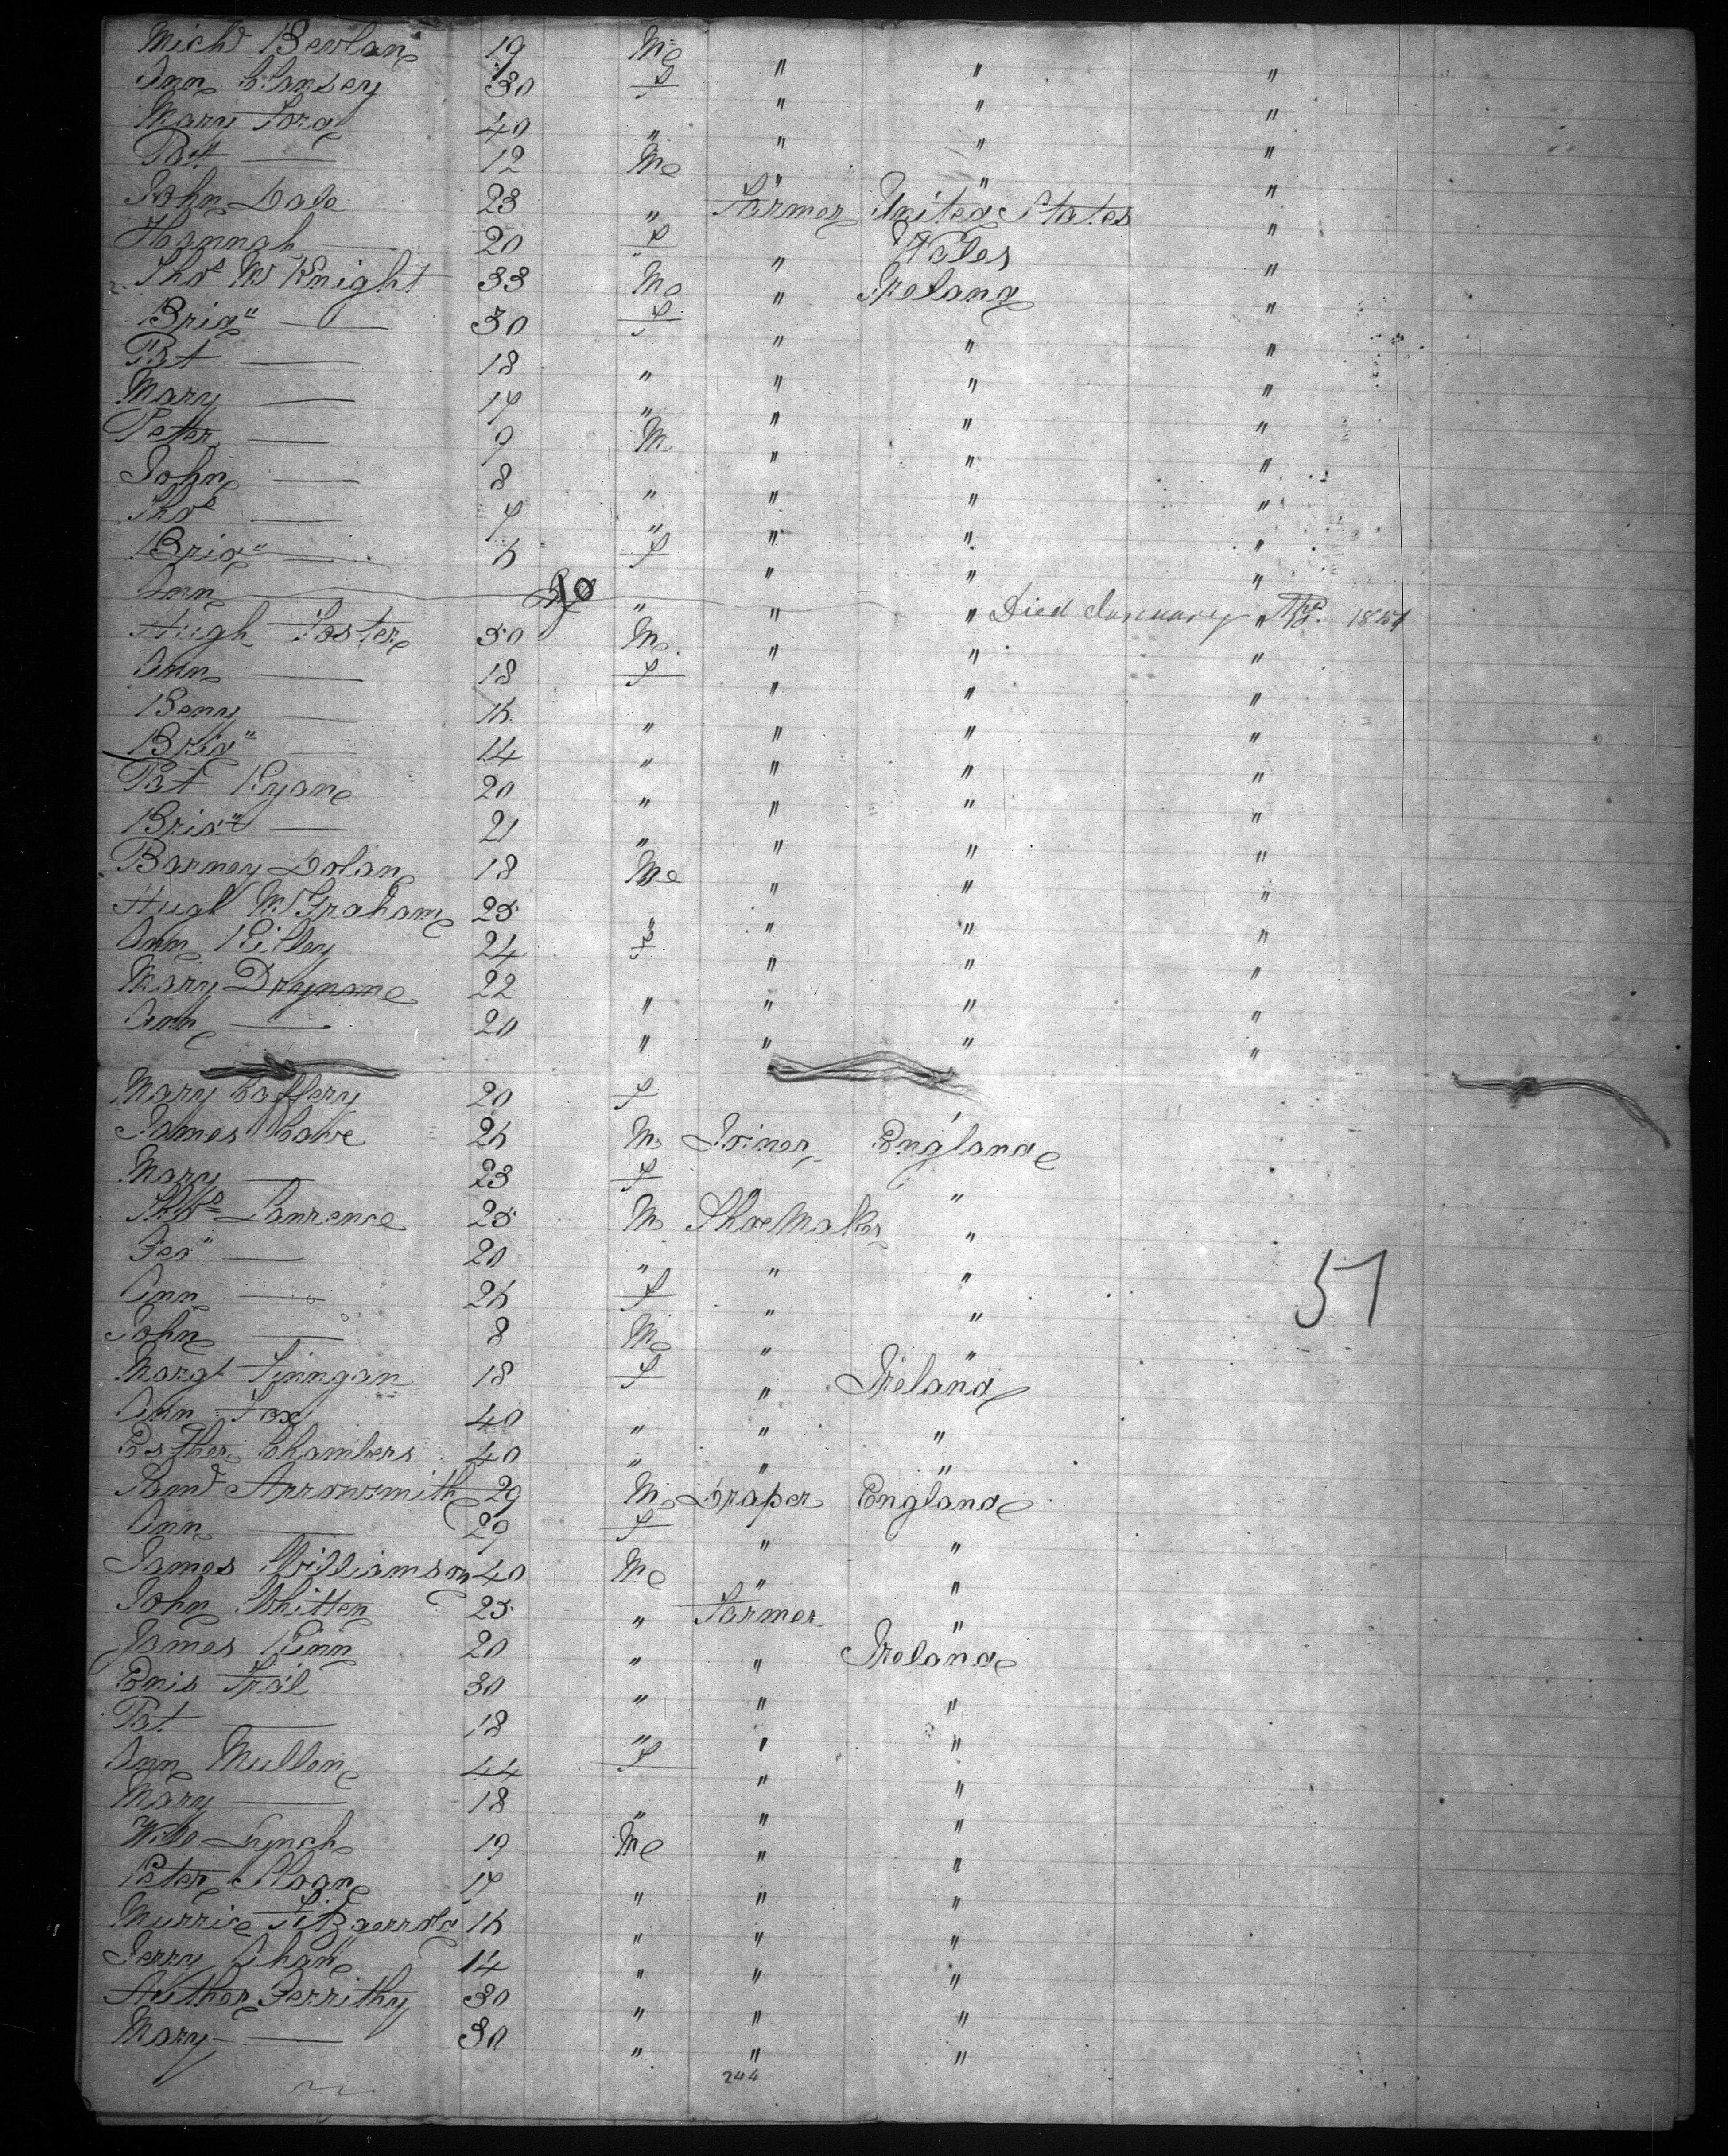 Mich^d Bevlan 19 M " " "
Ann Clansey 30 F " " "
Mary Ford 40 " " " "
Pat — 12 M " " "
John Dale 23 " Farmer United States "
Hannah — 20 F " Wales "
Tho^s M^cKnight 33 M " Ireland "
Brid" — 30 F " " "
Pat — 18 " " " "
Mary — 17 " " " "
Peter — 9 M " " "
John — 8 " " " "
Tho^s — 7 " " " "
Brid" — 6 F " " "
Ann " " " Died January " 1851
Hugh Foster 50 M " " "
Ann — 18 F " " "
Beny — 16 " " " "
Brid" — 14 " " " "
Pat Ryan 20 " " " "
Brid" — 21 " " " "
Barney Dolan 18 M " " "
Hugh M^cGraham 25 " " " "
Ann Rilley 24 F " " "
Mary Drynane 22 " " " "
Ann — 20 " " " "
Mary Caffery 20 F
James Cave 26 M Joiner England
Mary — 23 F " "
Tho^s Lawrence 25 M Shoe Maker "
Geo" — 20 " " "
Ann — 26 F " "
John — 8 M " "
51
Margt Finngan 18 F " Ireland
Ann Fox 40 " " "
Esther Chambers 40 " " "
Sam^l Arrowsmith 29 M Draper England
Ann — 29 F " "
James Williamson 40 M " "
John Whitten 25 " Farmer "
James Kinn 20 " " Ireland
Enis Trál 30 " " "
Pat — 18 " " "
Ann Mullen 44 F " "
Mary — 18 " " "
Will Lynch 19 M " "
Peter Sloan 17 " " "
Murrice Fitzgerrald 16 " " "
Jerry 14 " " "
Auther Gerrithy 30 " " "
Mary — 30 " " "
244